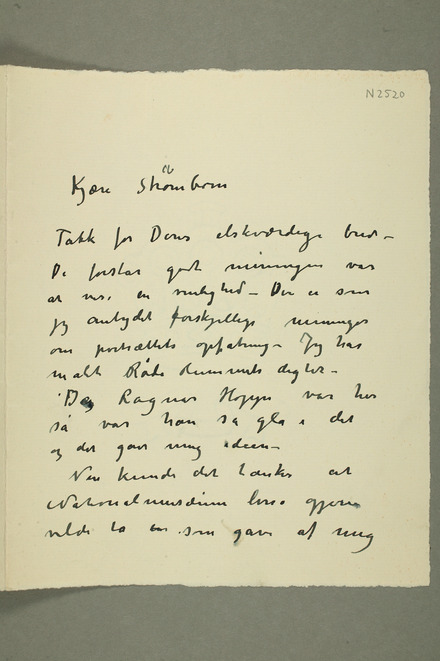 N 2520
Kjære Strømbom
Takk for Deres elskværdige brev –
De forstår godt meningen var
at vise en venlighed – Der er som
jeg antydet forskjellige meninger
om portrættets opfatning – Jeg har
malt Røde Rummets digter –
Da Ragnar Hoppe var her
så var han så gla i det
og det gav mig ideen –
Nu kunde det tænkes at
Nationalmuseum ikke gjerne
vilde ta en som gave af mig